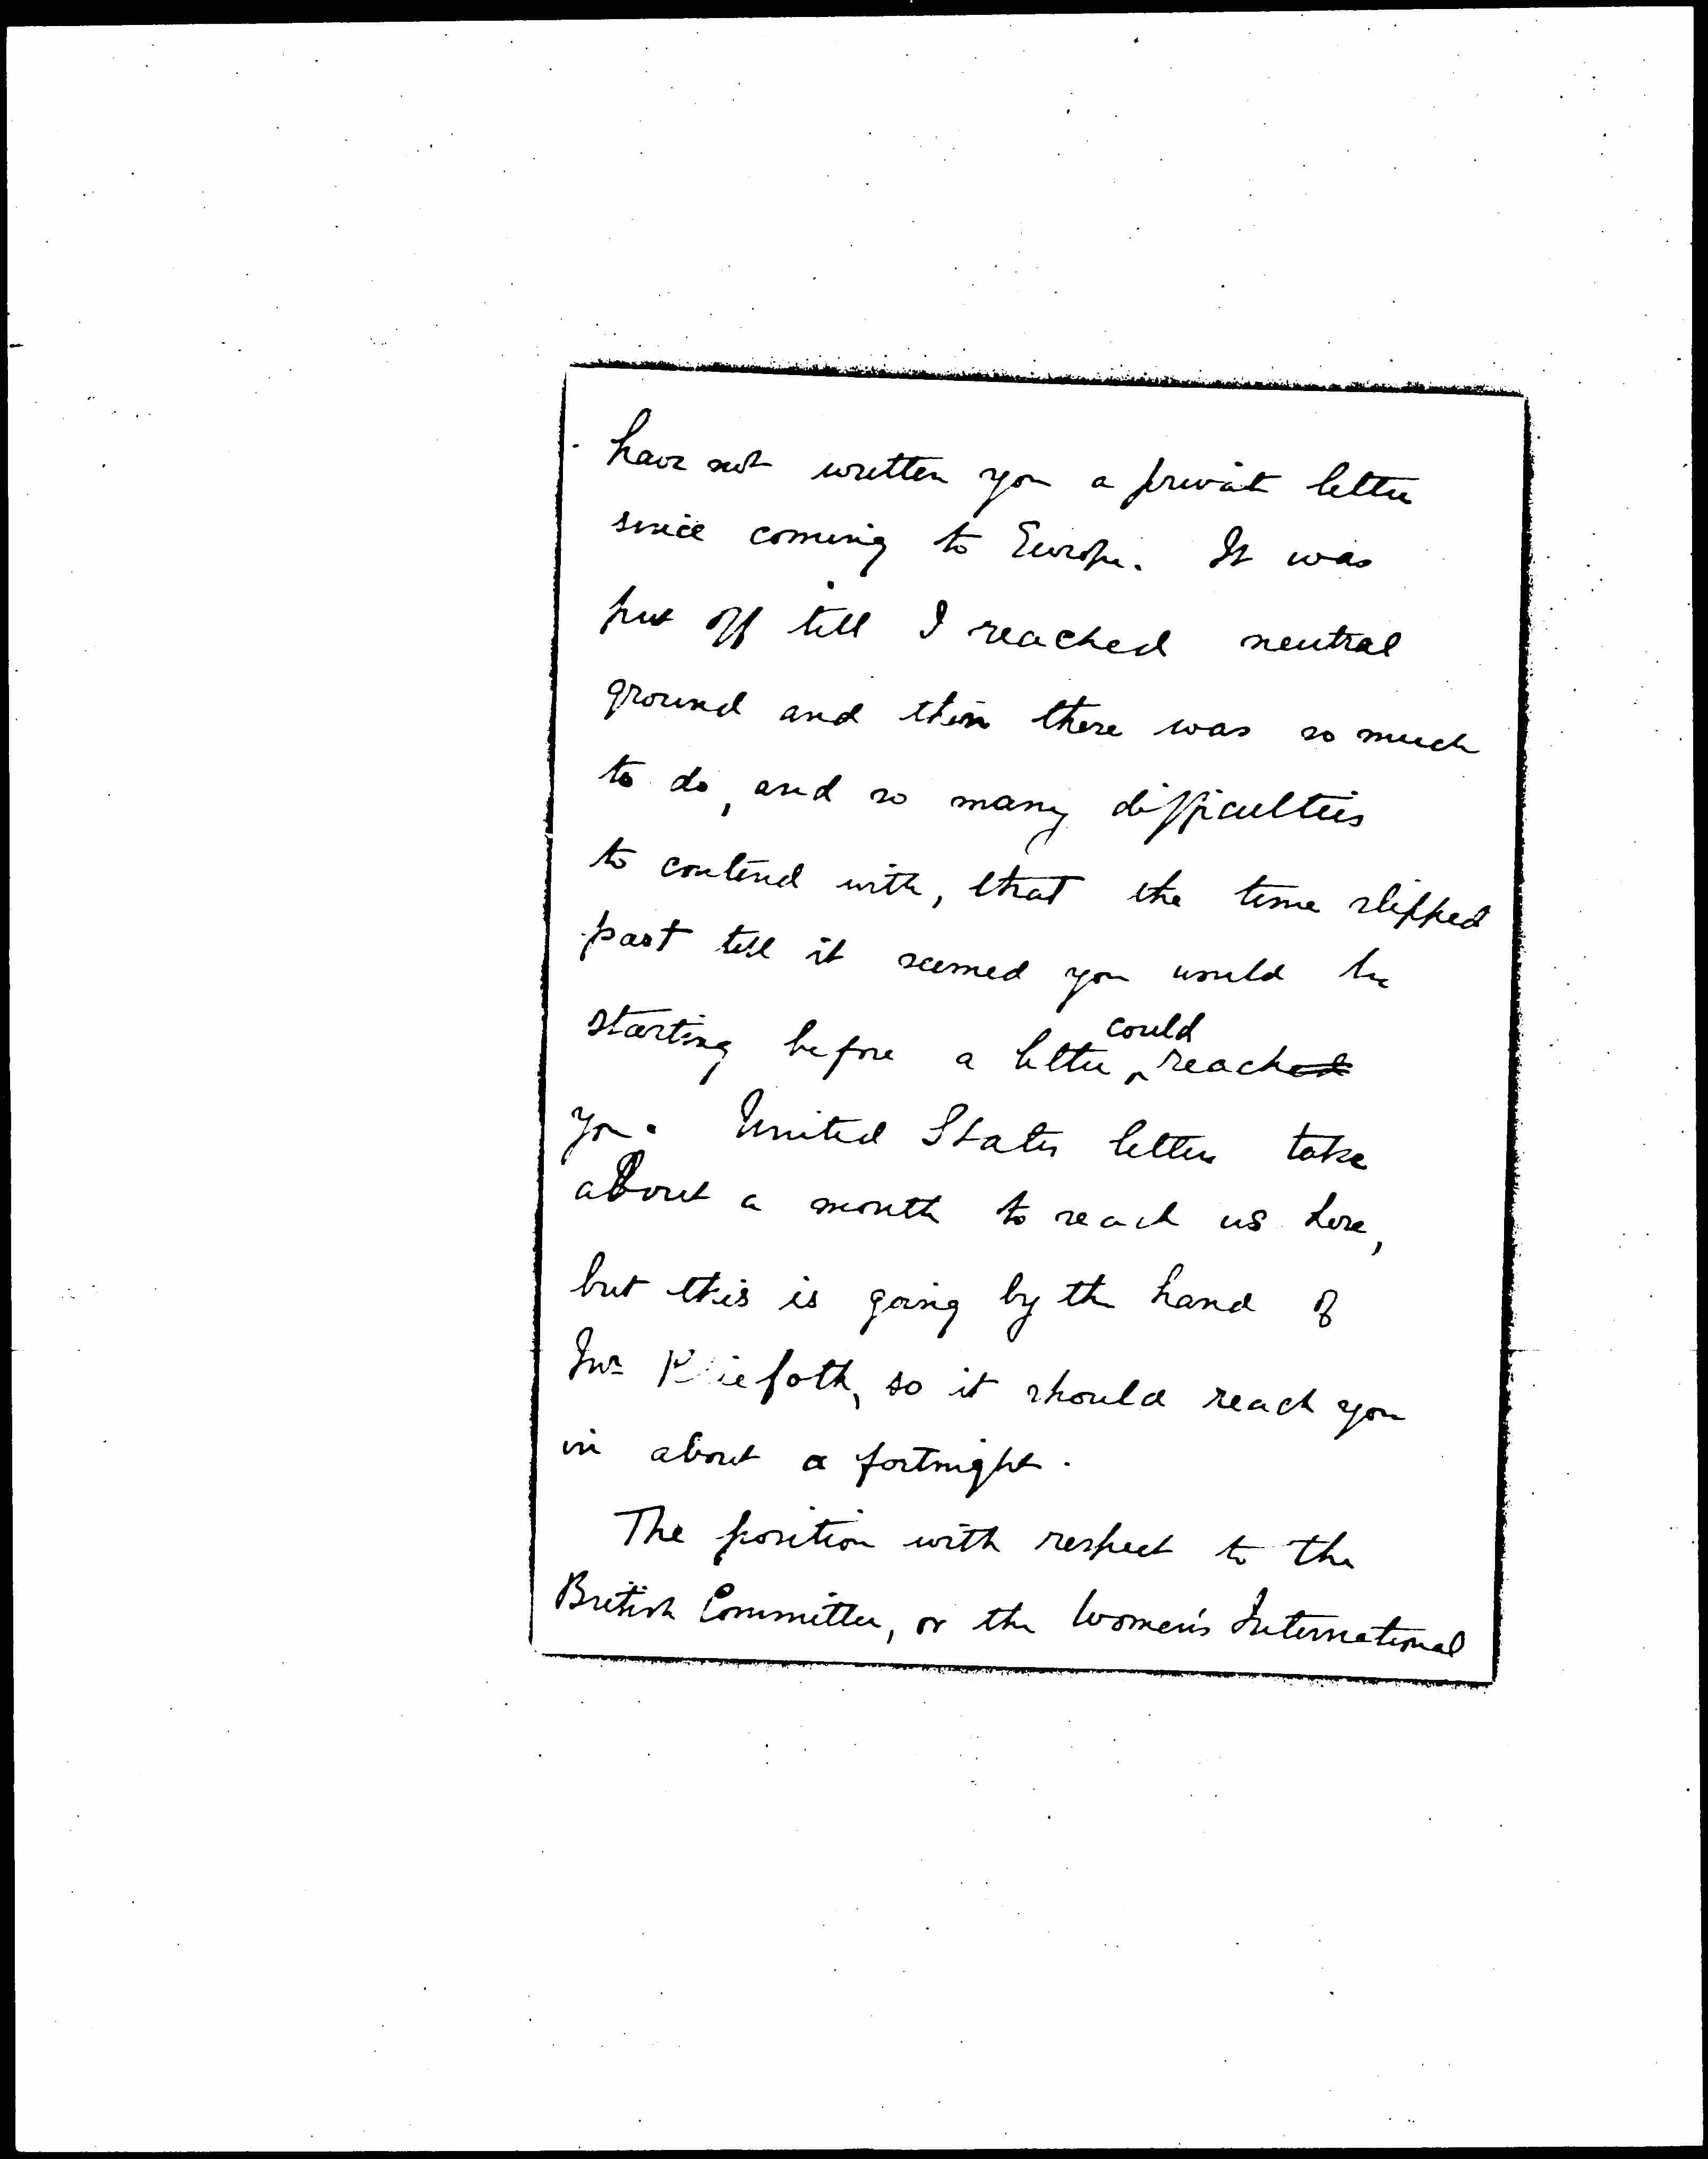 have not written you a private letter
since coming to Europe. It was
put off till I reached neutral
ground and then there was so much
to do, and so many difficulties
to contend with, that the time slipped
past till it seemed you would be
starting before a letter could reached
you. United States letters take
about a month to reach us here,
but this is going by the hand of
so it should reach you
in about a fortnight.
The position with respect to the
British Committee, or the Women's International